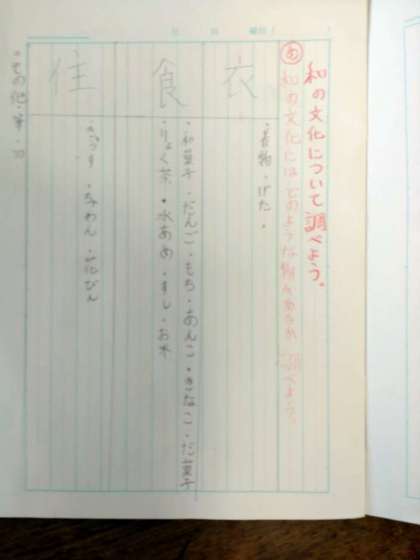 和の文化について調べよう。
め 和の文化にはどのような物があるか調べよう。
衣
・着物・げた・
食
・和菓子・だんご・もち・あんこ・きなこ・だ菓子
・りょく茶・水あめ・すし・お米
住
・ちゃわん・花びん
・その他・筆・刀